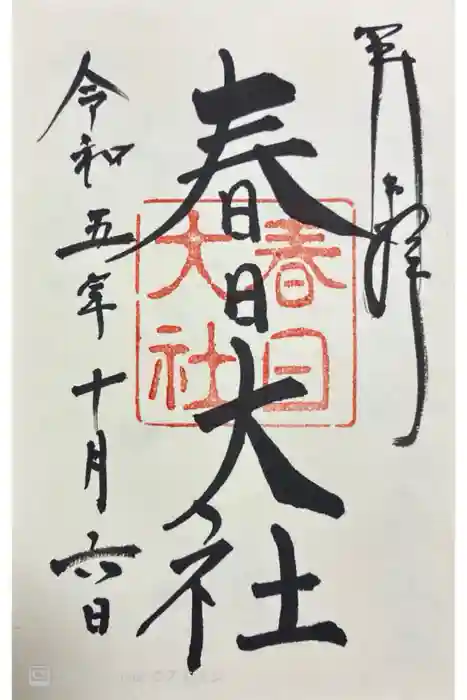 奉拝
春日大社
春日
大社
令和五年十月六日